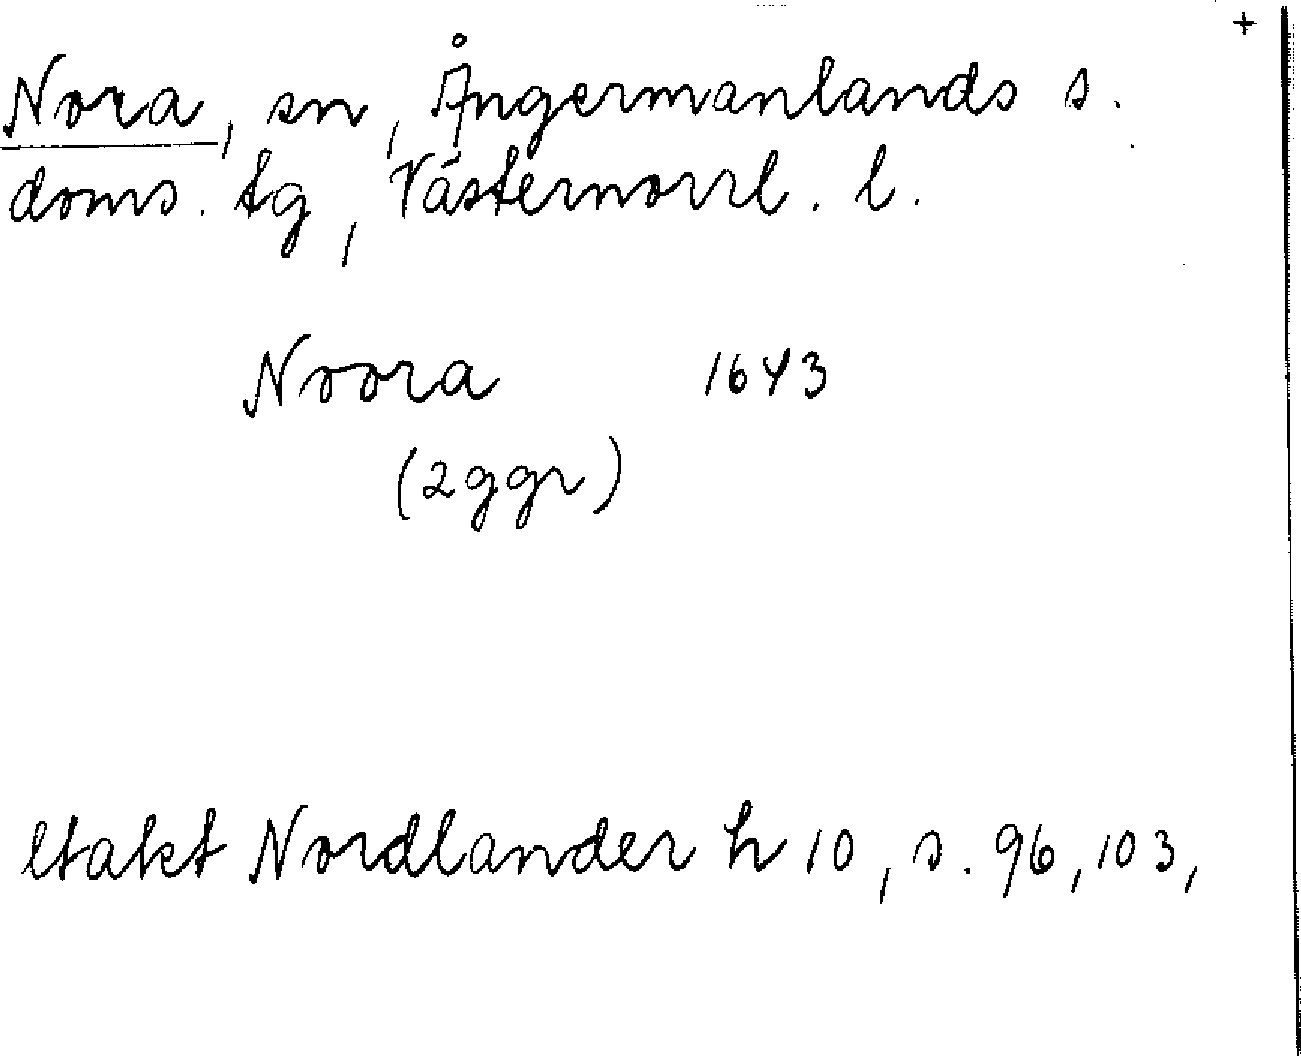 +
Nora, sn, Ångermanlands s.
doms. tg, Västernorrl. l.
Noora 1643
(2ggr)
Nordlander h 10, s. 96, 103,